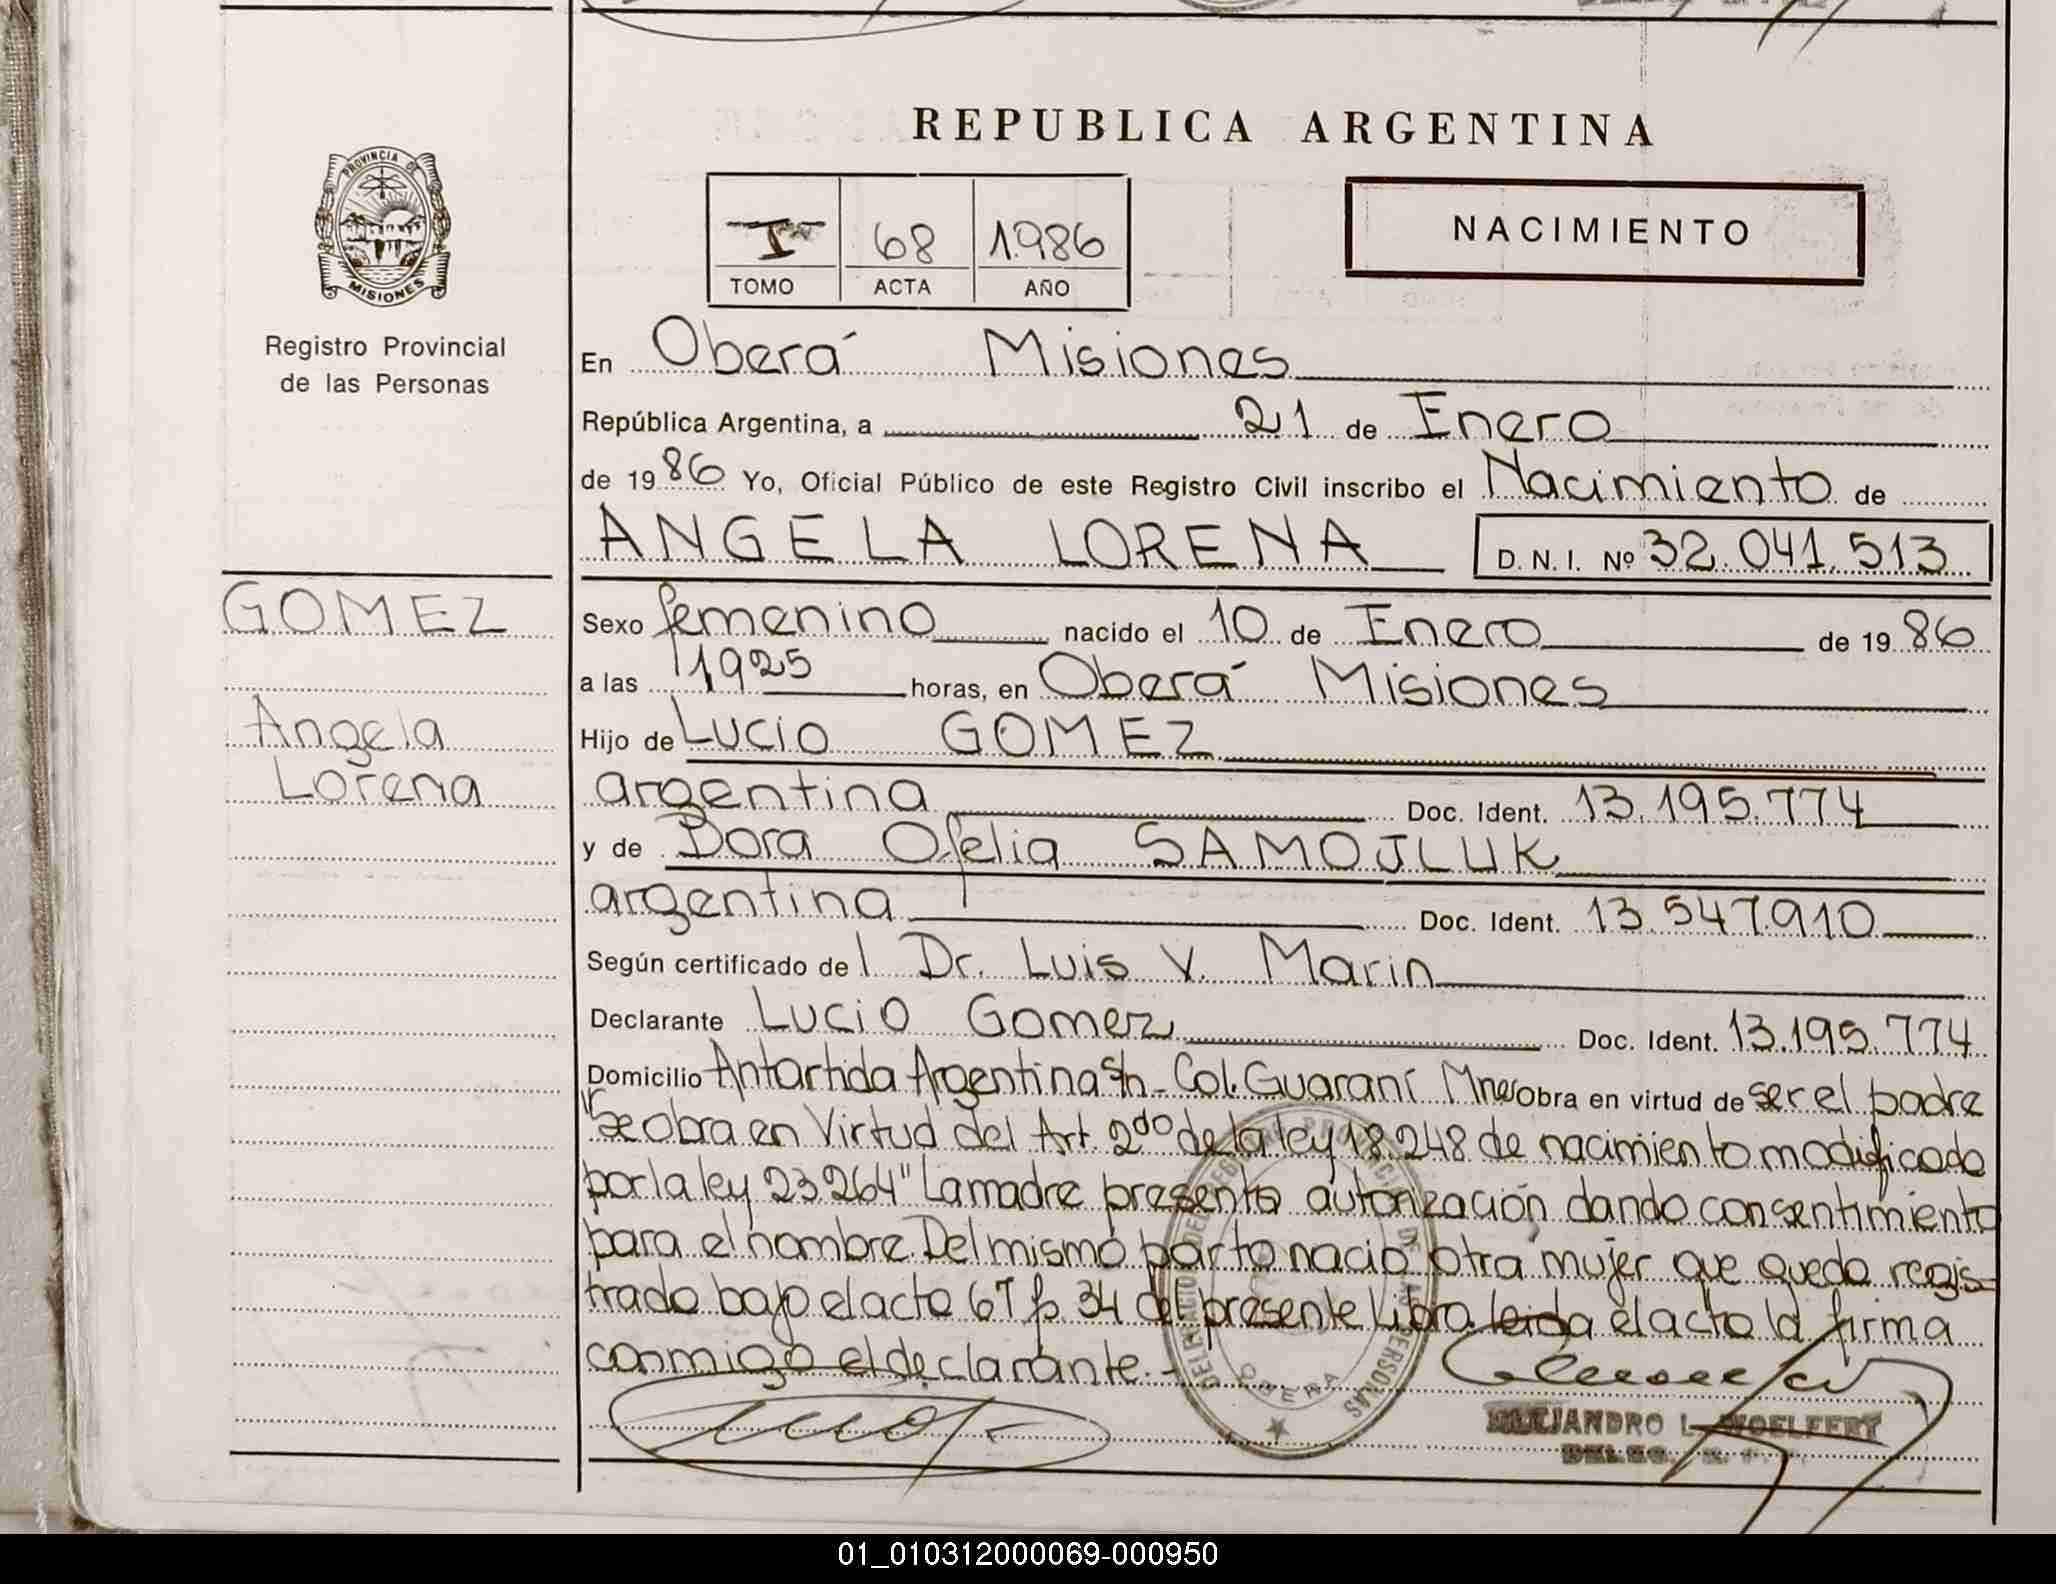 REPUBLICA ARGENTINA
PROVINCIA DE
MISIONES
Registro Provincial
de las Personas
I 68 1986
TOMO ACTA AÑO
NACIMIENTO
En Oberá Misiones
República Argentina, a 21 de Enero
de 1986 Yo, Oficial Público de este Registro Civil inscribo el Nacimiento de
ANGELA LORENA D. N. I. Nº 32.041.513
GOMEZ
Angela
Lorena
Sexo femenino nacido el 10 de Enero de 1986
a las 1925 horas, en Oberá Misiones
Hijo de Lucio GOMEZ
argentina Doc. Ident. 13.195.774
y de Dora Ofelia SAMOJLUK
argentina Doc. Ident. 13.547.910
Según certificado del Dr. Luis V. Marin
Declarante Lucio Gomez Doc. Ident. 13.195.774
Domicilio Antartida Argentina S/n - Col. Guaraní Mnes Obra en virtud de ser el padre
"Se obra en Virtud del Art. 2do de la ley 18.248 de nacimiento modificado
por la ley 23.264" La madre presento autorización dando consentimiento
para el nombre. Del mismo parto nació otra mujer que quedo regis-
trado bajo el acta 67 fs 34 del presente Libro. leida el acta la firma
conmigo el declarante.-
OBERA
ALEJANDRO L. WOELFERT
DELEG.
01_010312000069-000950